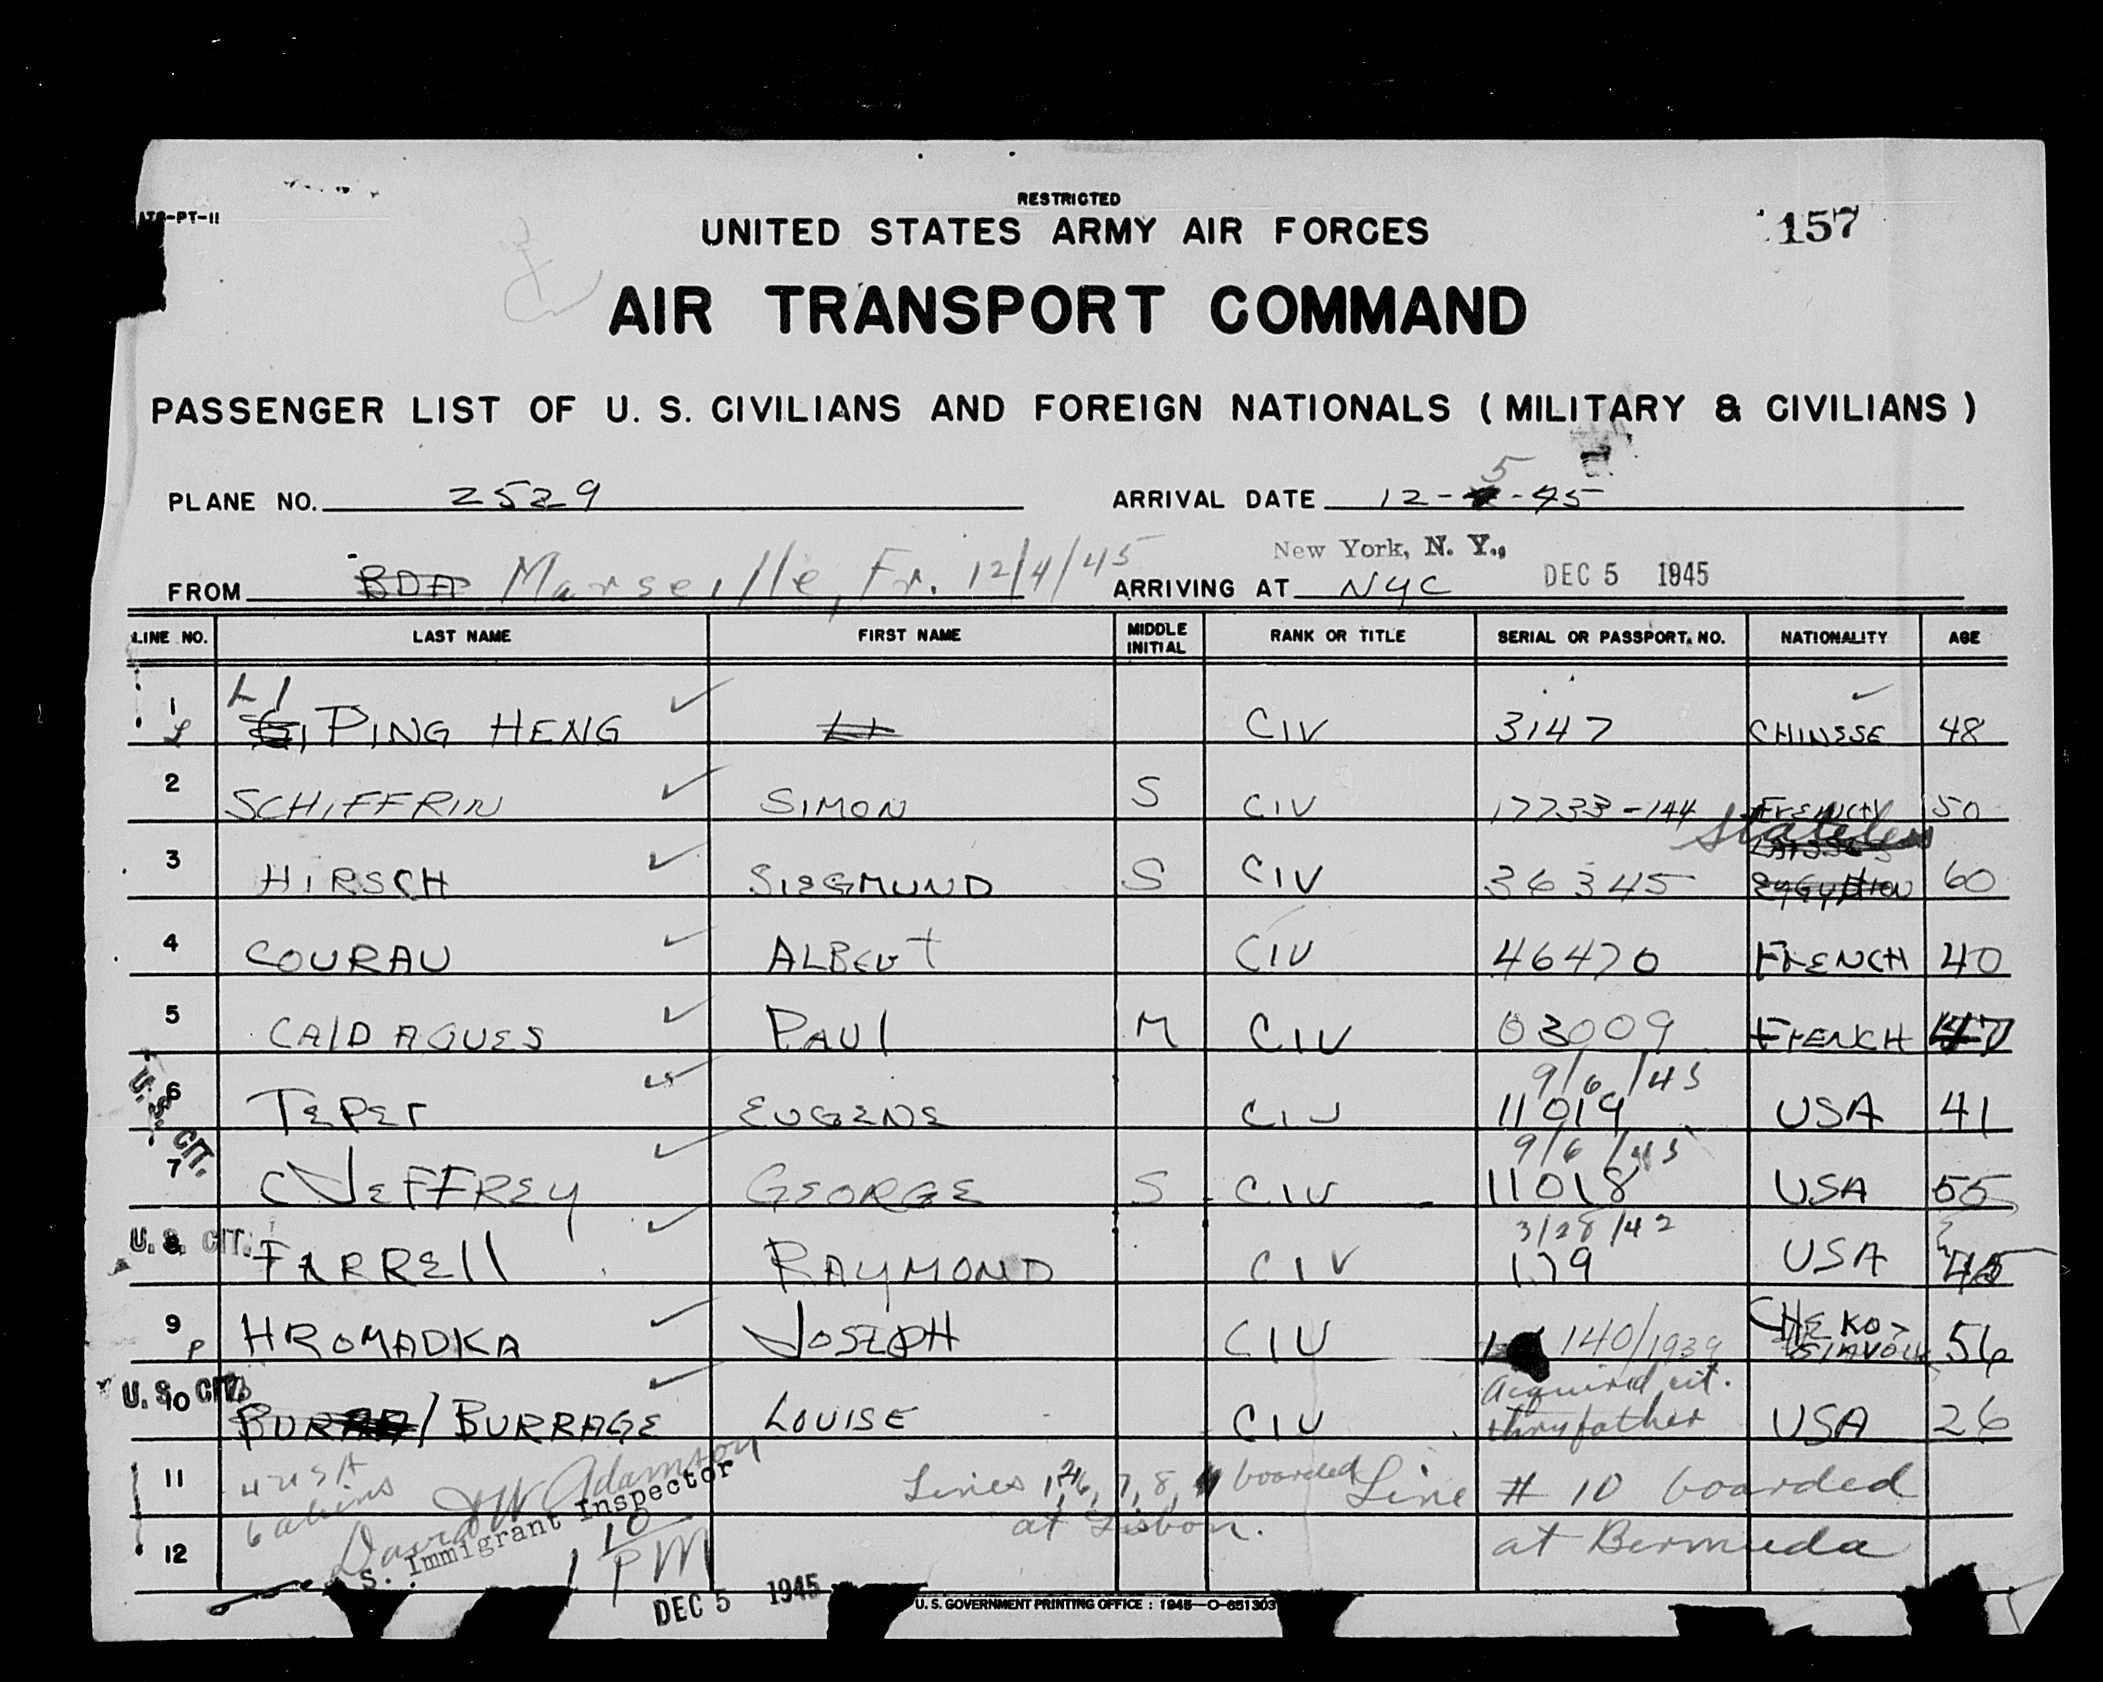 RESTRICTED
ATC-PT-11
UNITED STATES ARMY AIR FORCES
157
AIR TRANSPORT COMMAND
PASSENGER LIST OF U. S. CIVILIANS AND FOREIGN NATIONALS ( MILITARY & CIVILIANS )
PLANE NO. 2529 ARRIVAL DATE 12-5-45
New York, N. Y.,
FROM BDA Marseille, Fr. 12/4/45 ARRIVING AT NYC DEC 5 1945
LINE NO. LAST NAME FIRST NAME MIDDLE INITIAL RANK OR TITLE SERIAL OR PASSPORT. NO. NATIONALITY AGE
LI
1 PING HENG LI CIV 3147 CHINESE 48
2 SCHIFFRIN SIMON S CIV 17733-144 FRENCH 50
Stateless
3 HIRSCH SIEGMUND S CIV 36345 EYGYPTION 60
4 COURAU ALBErT CIV 46470 FrENCH 40
5 CAlDAGUES PAUl M CIV 03009 FrENCH 47
9/6/45
U. S. CIT.
6 TEPEr EUGENE CIV 11019 USA 41
9/6/45
7 JEFFREY GEORGE S CIV 11018 USA 55
3/28/42
U. S. CIT.
8 FARREll RAYMOND CIV 179 USA 45
9 HROMADKA JOSEPH CIU 140/1939 CHEKO-SlAVOK 56
P
Acquired cit.
U. S. CIT.
10 BURRAGE LOUISE CIU thru father USA 26
11 4 USA Lines 1, 2, 6, 7, 8, boarded Line # 10 boarded
6 aliens David W Adamson
at Lisbon. at Bermuda
12 S. Immigrant Inspector
1 10 PM
DEC 5 1945
U. S. GOVERNMENT PRINTING OFFICE : 1945—O-651303